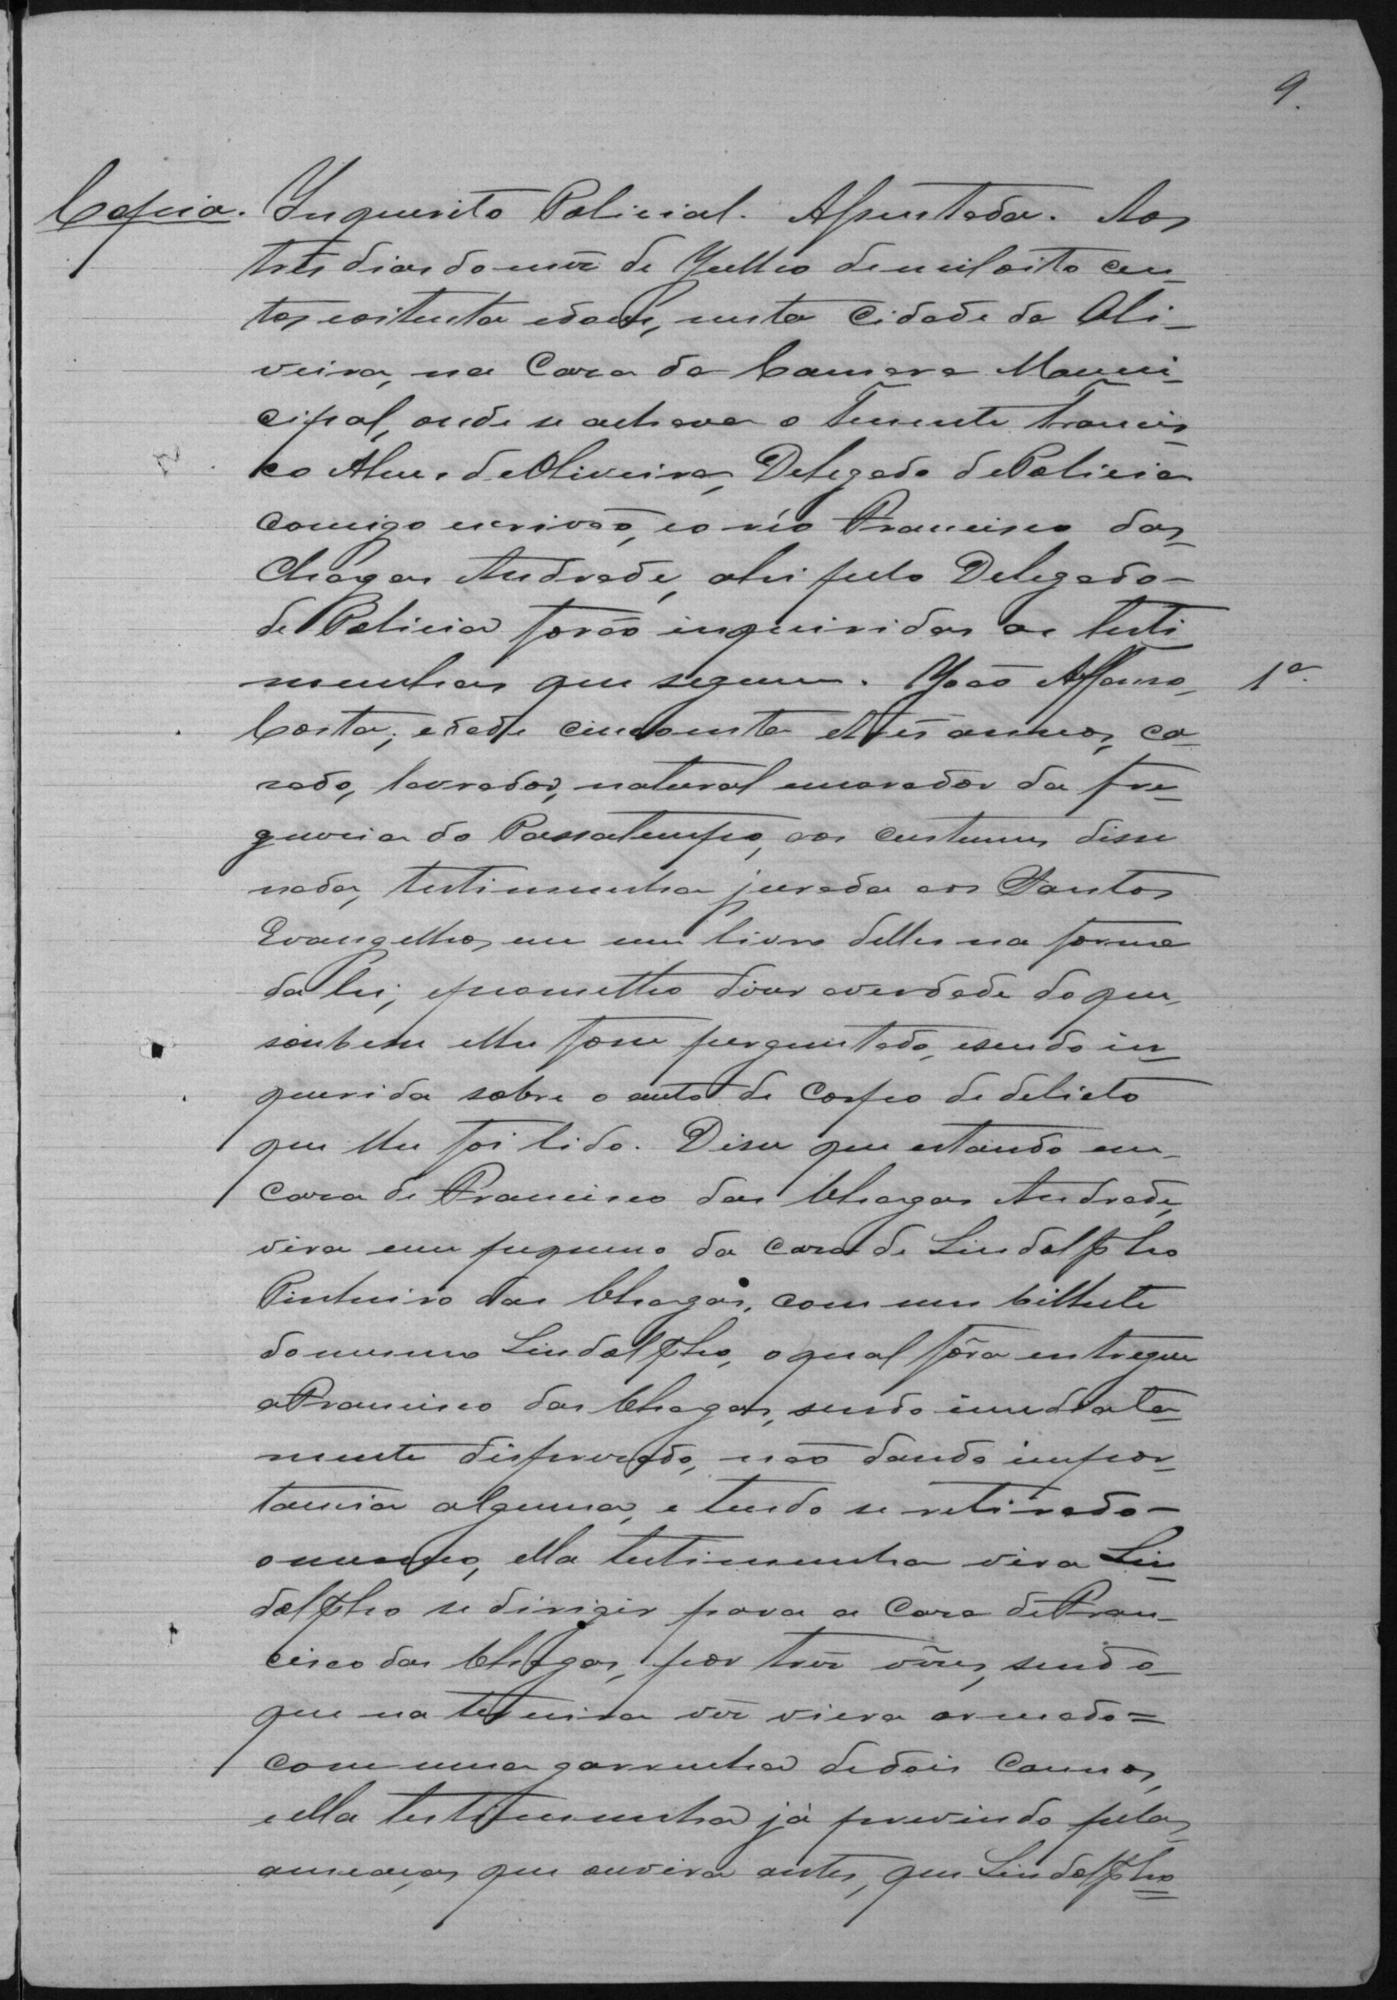 9.
Copia. Inquerito Policial. Assentada. Aos
tres dias do mez de Julho de mil oito cen-
tos e oitenta e dous, nesta Cidade da Oli-
veira, na Casa da Camara Muni-
cipal, onde se achava o Tenente Francis-
co Alves de Oliveira, Delegado de Policia
comigo escrivão, e o réo Francisco das
Chagas Andrade, ahi pelo Delegado-
de Policia forão inquiridas as testi-
munhas que seguem. João Affonso 1ª
Costa, edade cincoenta e tres annos, ca-
sado, lavrador, natural e morador da fre-
guesia do Passatempo, aos custumes disse
nada, testimunha jurada aos Santos
Evangelhos em um livro delles na forma
da lei, e prometteo dizer a verdade do que
soubesse e lhe fosse perguntado, e sendo in-
querida sobre o auto de corpo de delicto
que lhe foi lido. Disse que estando em
casa de Francisco das Chagas Andrade,
vira um pequeno da casa de Lindolpho
Pinheiro das Chagas, com um bilhete
do mesmo Lindolpho, o qual fôra entregue
a Francisco das Chagas, sendo immediata-
mente disprezado, não dando impor-
tancia alguma, e tendo se retirado-
o mesmo, ella testimunha vira Lin-
dolpho se dirigir para a casa de Fran-
cisco das Chagas, por tres vezes, sendo
que na terceira vez viera armado=
com uma garrucha de dois cannos,
e ella testimunha já prevendo pelas
ameaças que ouvira antes, que Lindolpho